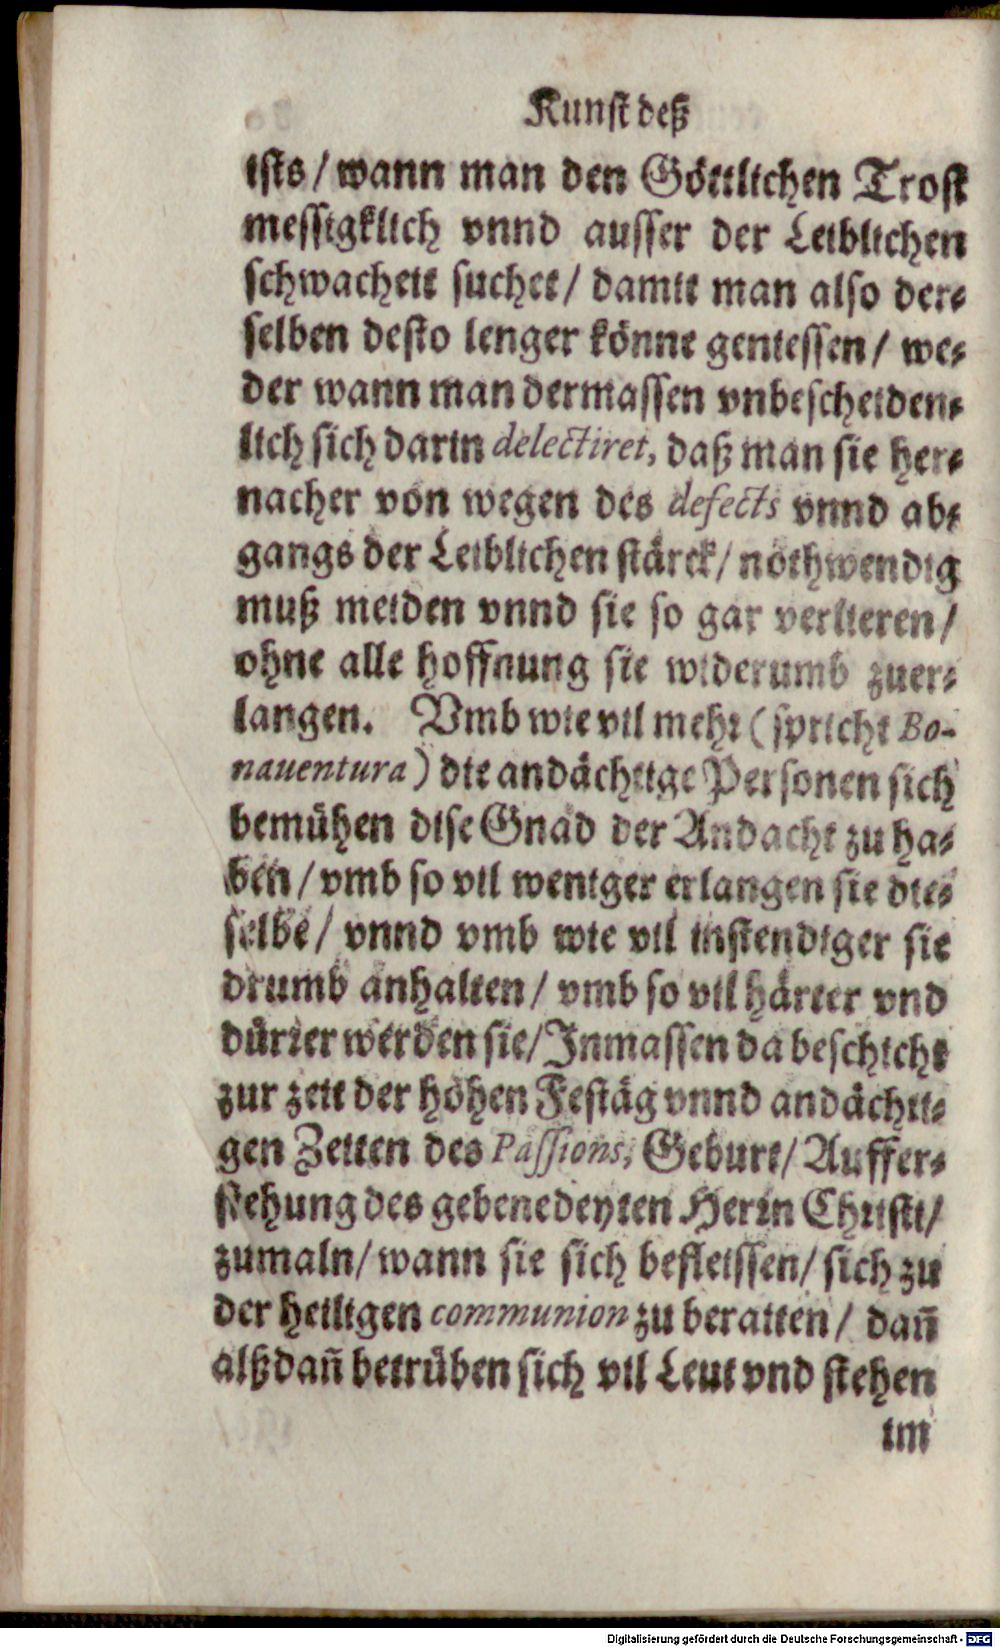 Kunst deß
ists / wann man den Göttlichen Trost
messigklich vnnd ausser der Leiblichen
schwacheit suchet / damit man also der⸗
selben desto lenger könne geniessen / we⸗
der wann man dermassen vnbescheiden⸗
lich sich darin delectiret, daß man sie her⸗
nacher von wegen des defects vnnd ab⸗
gangs der Leiblichen stärck / nothwendig
muß meiden vnnd sie so gar verlieren /
ohne alle hoffnung sie widerumb zuer⸗
langen. Vmb wie vil mehr ( spricht Bo-
nauentura ) die andächtige Personen sich
bemühen dise Gnad der Andacht zu ha⸗
ben / vmb so vil weniger erlangen sie die⸗
selbe / vnnd vmb wie vil instendiger sie
drumb anhalten / vmb so vil härter vnd
dürrer werden sie / Inmassen da beschicht
zur zeit der hohen Festäg vnnd andächti⸗
gen Zeiten des Passions, Geburt / Auffer⸗
stehung des gebenedeyten Herrn Christi /
zumaln / wann sie sich befleissen / sich zu
der heiligen communion zu beraiten / dañ
alßdañ betrüben sich vil Leut vnd stehen
im
Digitalisierung gefördert durch die Deutsche Forschungsgemeinschaft - DFG